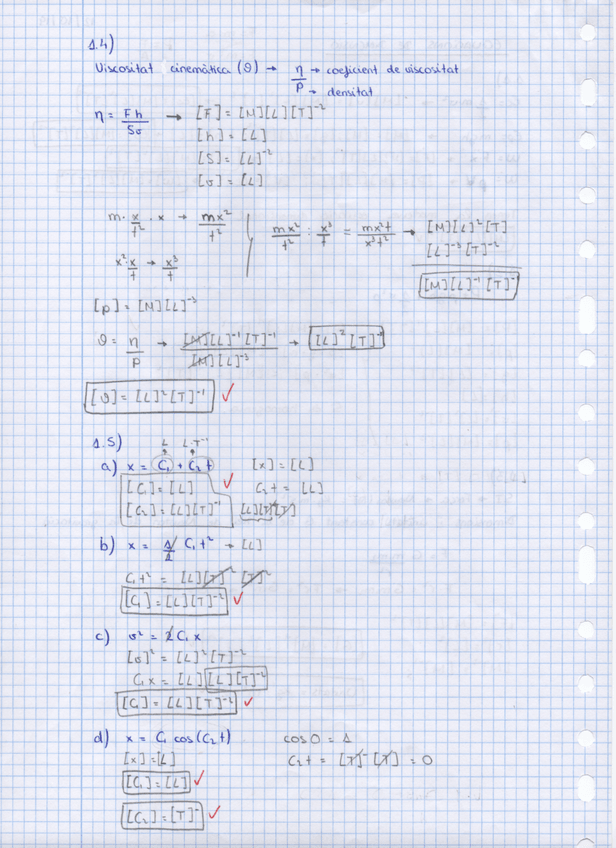 1.4)
Viscositat cinemàtica (ϑ) → η/ρ → coeficient de viscositat
→ densitat
η = Fh/Sv → [F] = [M][L][T]⁻²
[h] = [L]
[S] = [L]⁻²
[v] = [L]
m · x/t² · x → mx²/t²
mx²/t² : x³/t = mx²t/x³t² → [M][L]²[T]
[L]⁻³[T]⁻²
x² · x/t → x³/t
[M][L]⁻¹[T]⁻¹
[ρ] = [M][L]⁻³
ϑ = η/ρ → [M][L]⁻¹[T]⁻¹/[M][L]⁻³ → [L]²[T]⁻¹
[ϑ] = [L]²[T]⁻¹ ✓
1.5)
L L·T⁻¹
a) x = C₁ + C₂t [x] = [L]
[C₁] = [L] ✓ C₂t = [L]
[C₂] = [L][T]⁻¹ [L][T]⁻¹[T]
b) x = 1/2 C₁t² → [L]
C₁t² = [L][T]⁻² [T]²
[C₁] = [L][T]⁻² ✓
c) v² = 2C₁x
[v]² = [L]²[T]⁻²
C₁x = [L][L][T]⁻²
[C₁] = [L][T]⁻² ✓
d) x = C₁ cos(C₂t) cos0 = 1
[x] = [L] C₂t = [T]⁻[T] = 0
[C₁] = [L] ✓
[C₂] = [T]⁻ ✓